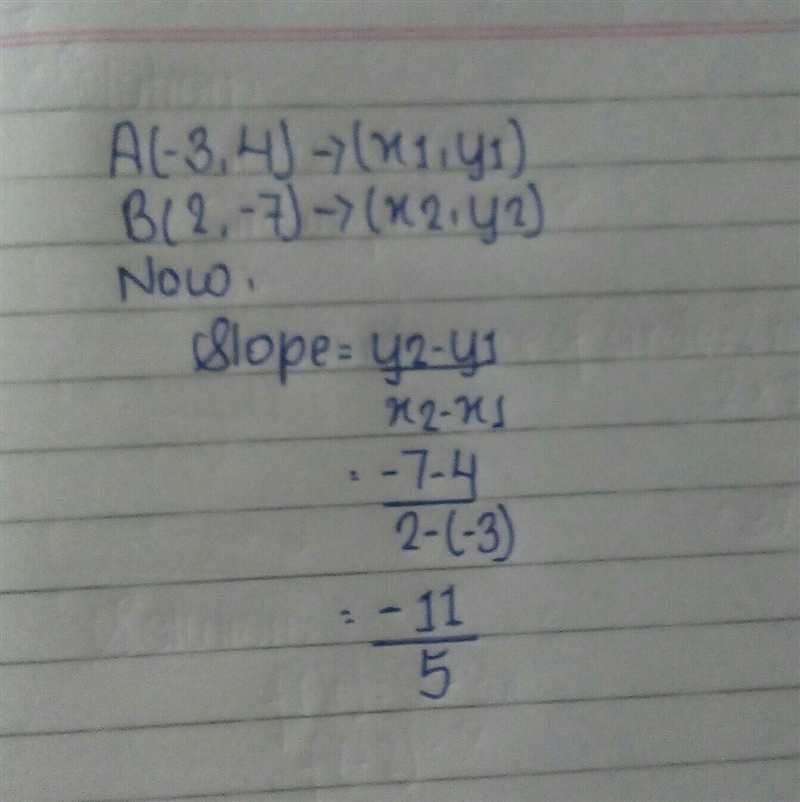 A(-3,4)->(x1,y1)
B(2,-7)->(x2,y2)
Now,
Slope= y2-y1
x2-x1
= -7-4
2-(-3)
= -11
5